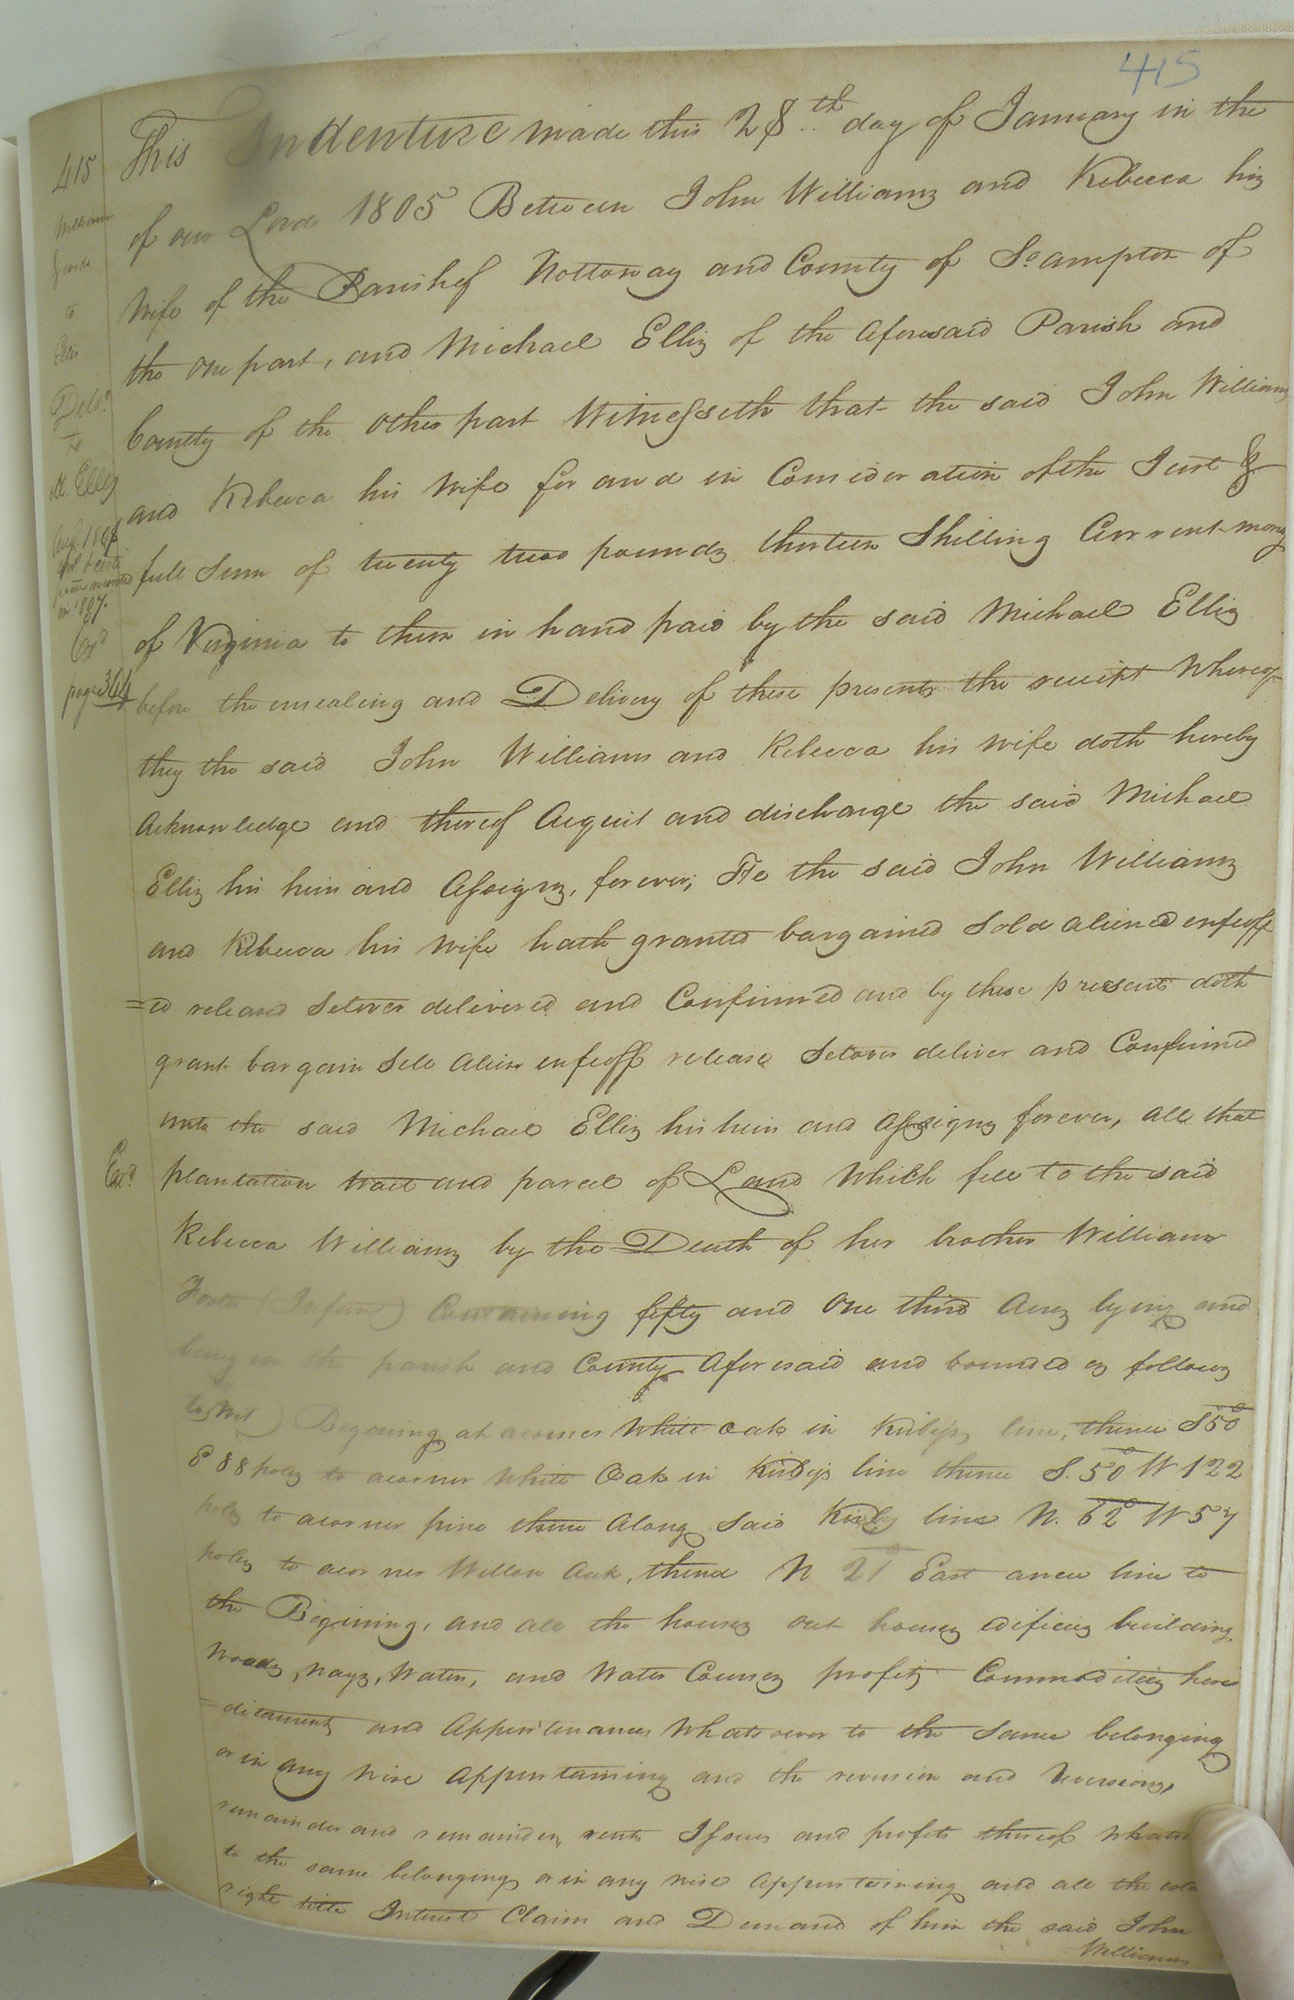 415
415
This Indenture made this 28th day of January in the
of our Lord 1805 Between John Williams and Rebecca his
Wife of the Parish of Nottoway and County of Soampton of
the one part, and Michael Ellis of the Aforesaid Parish and
County of the other part Witnesseth that the said John Williams
and Rebecca his Wife for and in Consideration of the Just &
full Sum of twenty two pounds thirteen Shilling Current mony
of Virginia to them in hand paid by the said Michael Ellis
before the ensealing and Delivery of these presents the receipt Whereof
they the said John Williams and Rebecca his wife doth hereby
Acknowledge and thereof Acquit and discharge the said Michael
Ellis his heirs and Assigns, forever, He the said John Williams
and Rebecca his Wife hath granted bargained Sold aliened enfeoff
=ed released Setover delivered and Confirmed and by these presents doth
grant bargain Sell Alien enfeoff release Setover deliver and Confirmed
unto the said Michael Ellis his heirs and Assigns forever, all that
plantation tract and parcel of Land Which fell to the said
Rebecca Williams by the Death of her brother William
(Infant) Containing fifty and One third Acres lying and
being in the parish and County Aforesaid and bounded as follows
(towit) Begining at acorner White oak in Kirbys line, thence S50°
E 88 poles to acorner White Oak in Kirbys line thence S. 50° W 122
poles to acorner pine thence Along Said Kirby line N. 62° W 57
poles to acorner Willow Oak, thence N 21° East anew line to
the Begining, and all the houses out houses edifices building,
Woods, Ways, Waters, and Water Courses profits Commodities here
=ditaments and Appurtenances Whatsoever to the Same belonging
or in any wise Appurtaining and the revision and Reversions,
remainder and remainders, rents Issues and profits thereof Whatso
to the same belonging or in any wise Appurtaining and all the esta
right title Interest Claim and Demand of him the said John
Williams
Williams
& wife
to
Ellis
Deld.
to
M. Ellis
in 1807.
Exd
page 344
Exd.